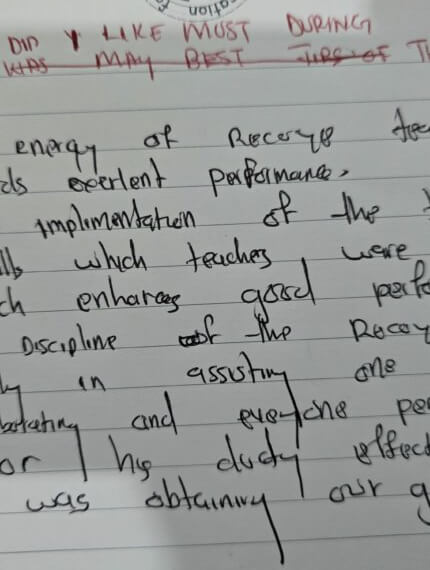 ation
DID Y LIKE MOST DURING
WAS MAY BEST TIPS OF T
energy of Recorye tea
ds exerlent performance,
implementation of the t
lls which teaches were
ch enhances good perfo
Discipline of the Recoy
ly in assisting one
borating and everyone pe
or his duty effec
was obtaining our g